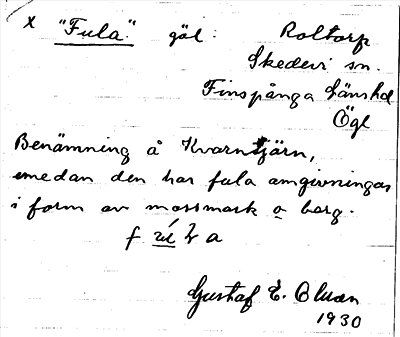 x "Fula" göl: Roltorp
Skedevi sn.
Finspånga länshd
Ögl
Benämning å Kvarntjärn,
emedan den har fula omgivningar
i form av mossmark o berg.
f
Gustaf E. Olsson
1930